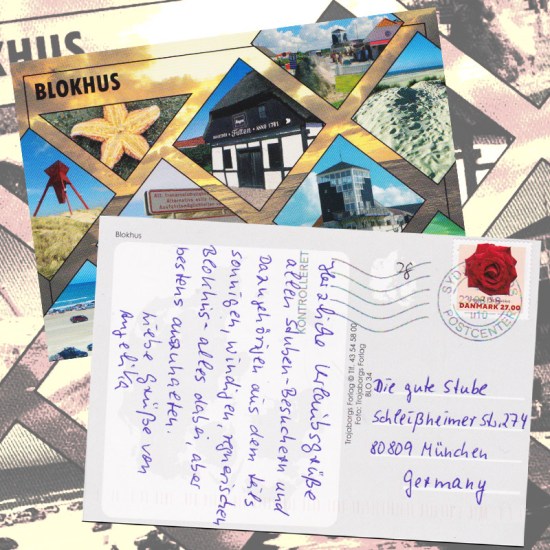 KHUS
BLOKHUS
Fiskerestaurant
Futten
ANNO 1781
Blokhus
Herzliche Urlaubsgrüße
allen Stuben-Besuchern und
Dazugehörigen aus dem teils
sonnigen, windigen, regnerischen
Blokhus - alles dabei, aber
bestens auszuhalten.
Liebe Grüße von
Angelika
KONTROLLERET
Trojaborgs Forlag © Tlf. 43 54 58 00
Foto: Trojaborgs Forlag
BLO 34
28
DANMARK 27.00
POSTCENTER
Die gute Stube
Schleißheimer Str. 274
80809 München
Germany